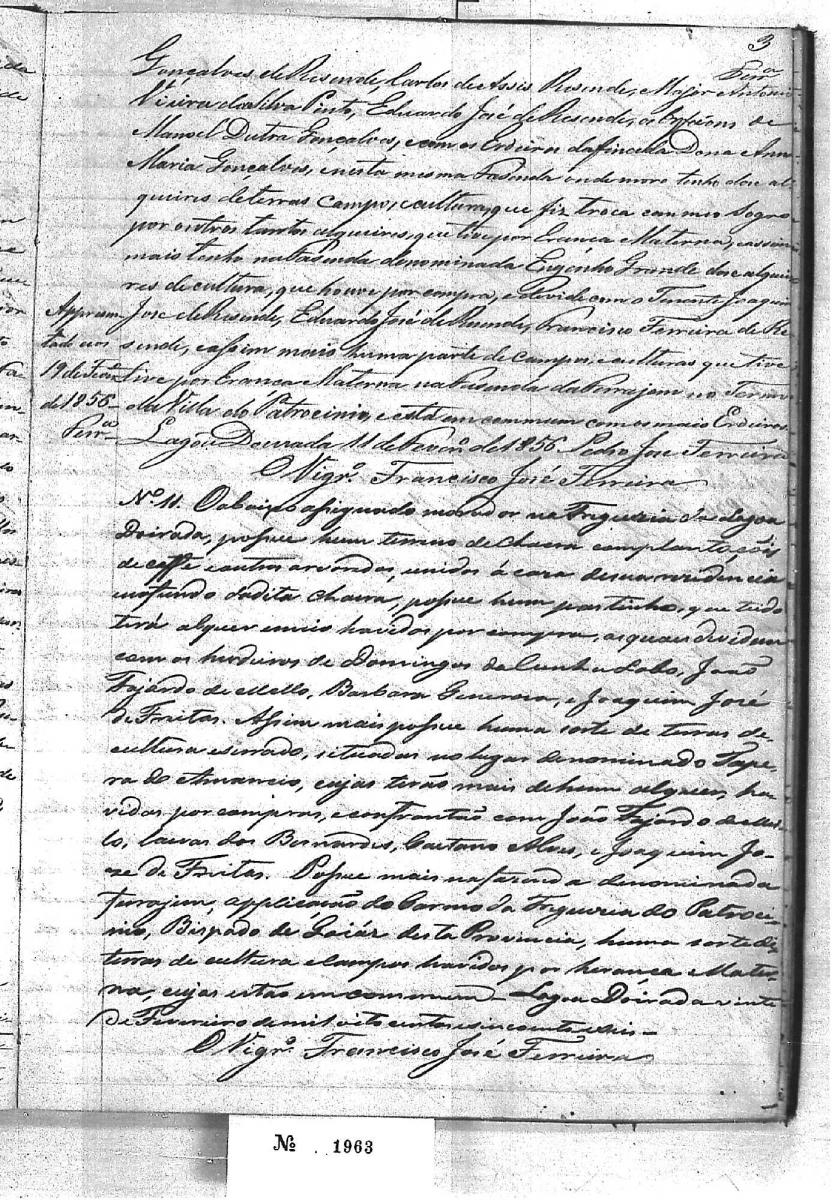 3
Ferr.ª
Gonçalves de Resende, Carlos de Assis Resende, e Major Antonio
Vieira da Silva Pinto, Eduardo José de Resende, os Orfaons de
Manoel Dutra Gonçalves, e com os Erdeiros da fincada Dona Anna
Maria Gonçalves, e nesta mesma Fasenda onde moro tenho dose al
queires de terras Campos, e cultura, que fiz troca com meu Sogro
por outros tantos alqueires, que tive por Eranca Materna, e assim
mais tenho na Fasenda denominada Engenho Grande dose alquei
res de cultura, que houve por compra, e devide com o Tenente Joaquim
Jose de Resende, Eduardo José de Resende, Francisco Ferreira de Re
sende, e assim mais huma parte de campos, e culturas que tive
tive por Eranca Materna na Fasenda da Forrajem no Termo
da Villa do Patrocinio, e está em commum com os mais Erdeiros.
Lagôa Dourada 11 de Fevr.º de 1856. Pedro Jose Ferreira
O Vigr.º Francisco José Ferreira
Appresen
tado aos
19 de Fevr.º
de 1856
Ferr.ª
Nº 11. O abaixo assignado morador na Freguezia da Lagoa
Doirada, possue hum terreno de chacra com plantaçõis
de caffe e outros arvoredos, unidos á caza de sua rezidencia
e no fundo da dita chacra, possue hum pastinho, que tudo
terá alquer e meio havidos por compra, os quaes dividem
com os herdeiros de Domingos da Cunha Lobo, João
Fajardo de Mello, Barbara Generosa, e Joaquim José
de Freitas. Assim mais possue huma sorte de terras de
cultura e serrado, situadas no lugar denominado Tape
ra do Amancio, cujas terão mais de hum alquer, ha
vidas por compras, e confrontão com João Fajardo de Mel
lo, lavras dos Bernardes, Caetano Alves, e Joaquim Jo
ze de Freitas. Possue mais na fazenda denominada
Forrajem, applicação do Carmo da Freguezia do Patroci
nio, Bispado de Goiáz desta Provincia, huma sorte de
terras de cultura e campos havidos por herança Mater
na, cujas estão em commum. Lagoa Doirada vinte
de Fevereiro de mil oito centos e sincoenta e seis
O Vigr.º Francisco José Ferreira
Nº 1963